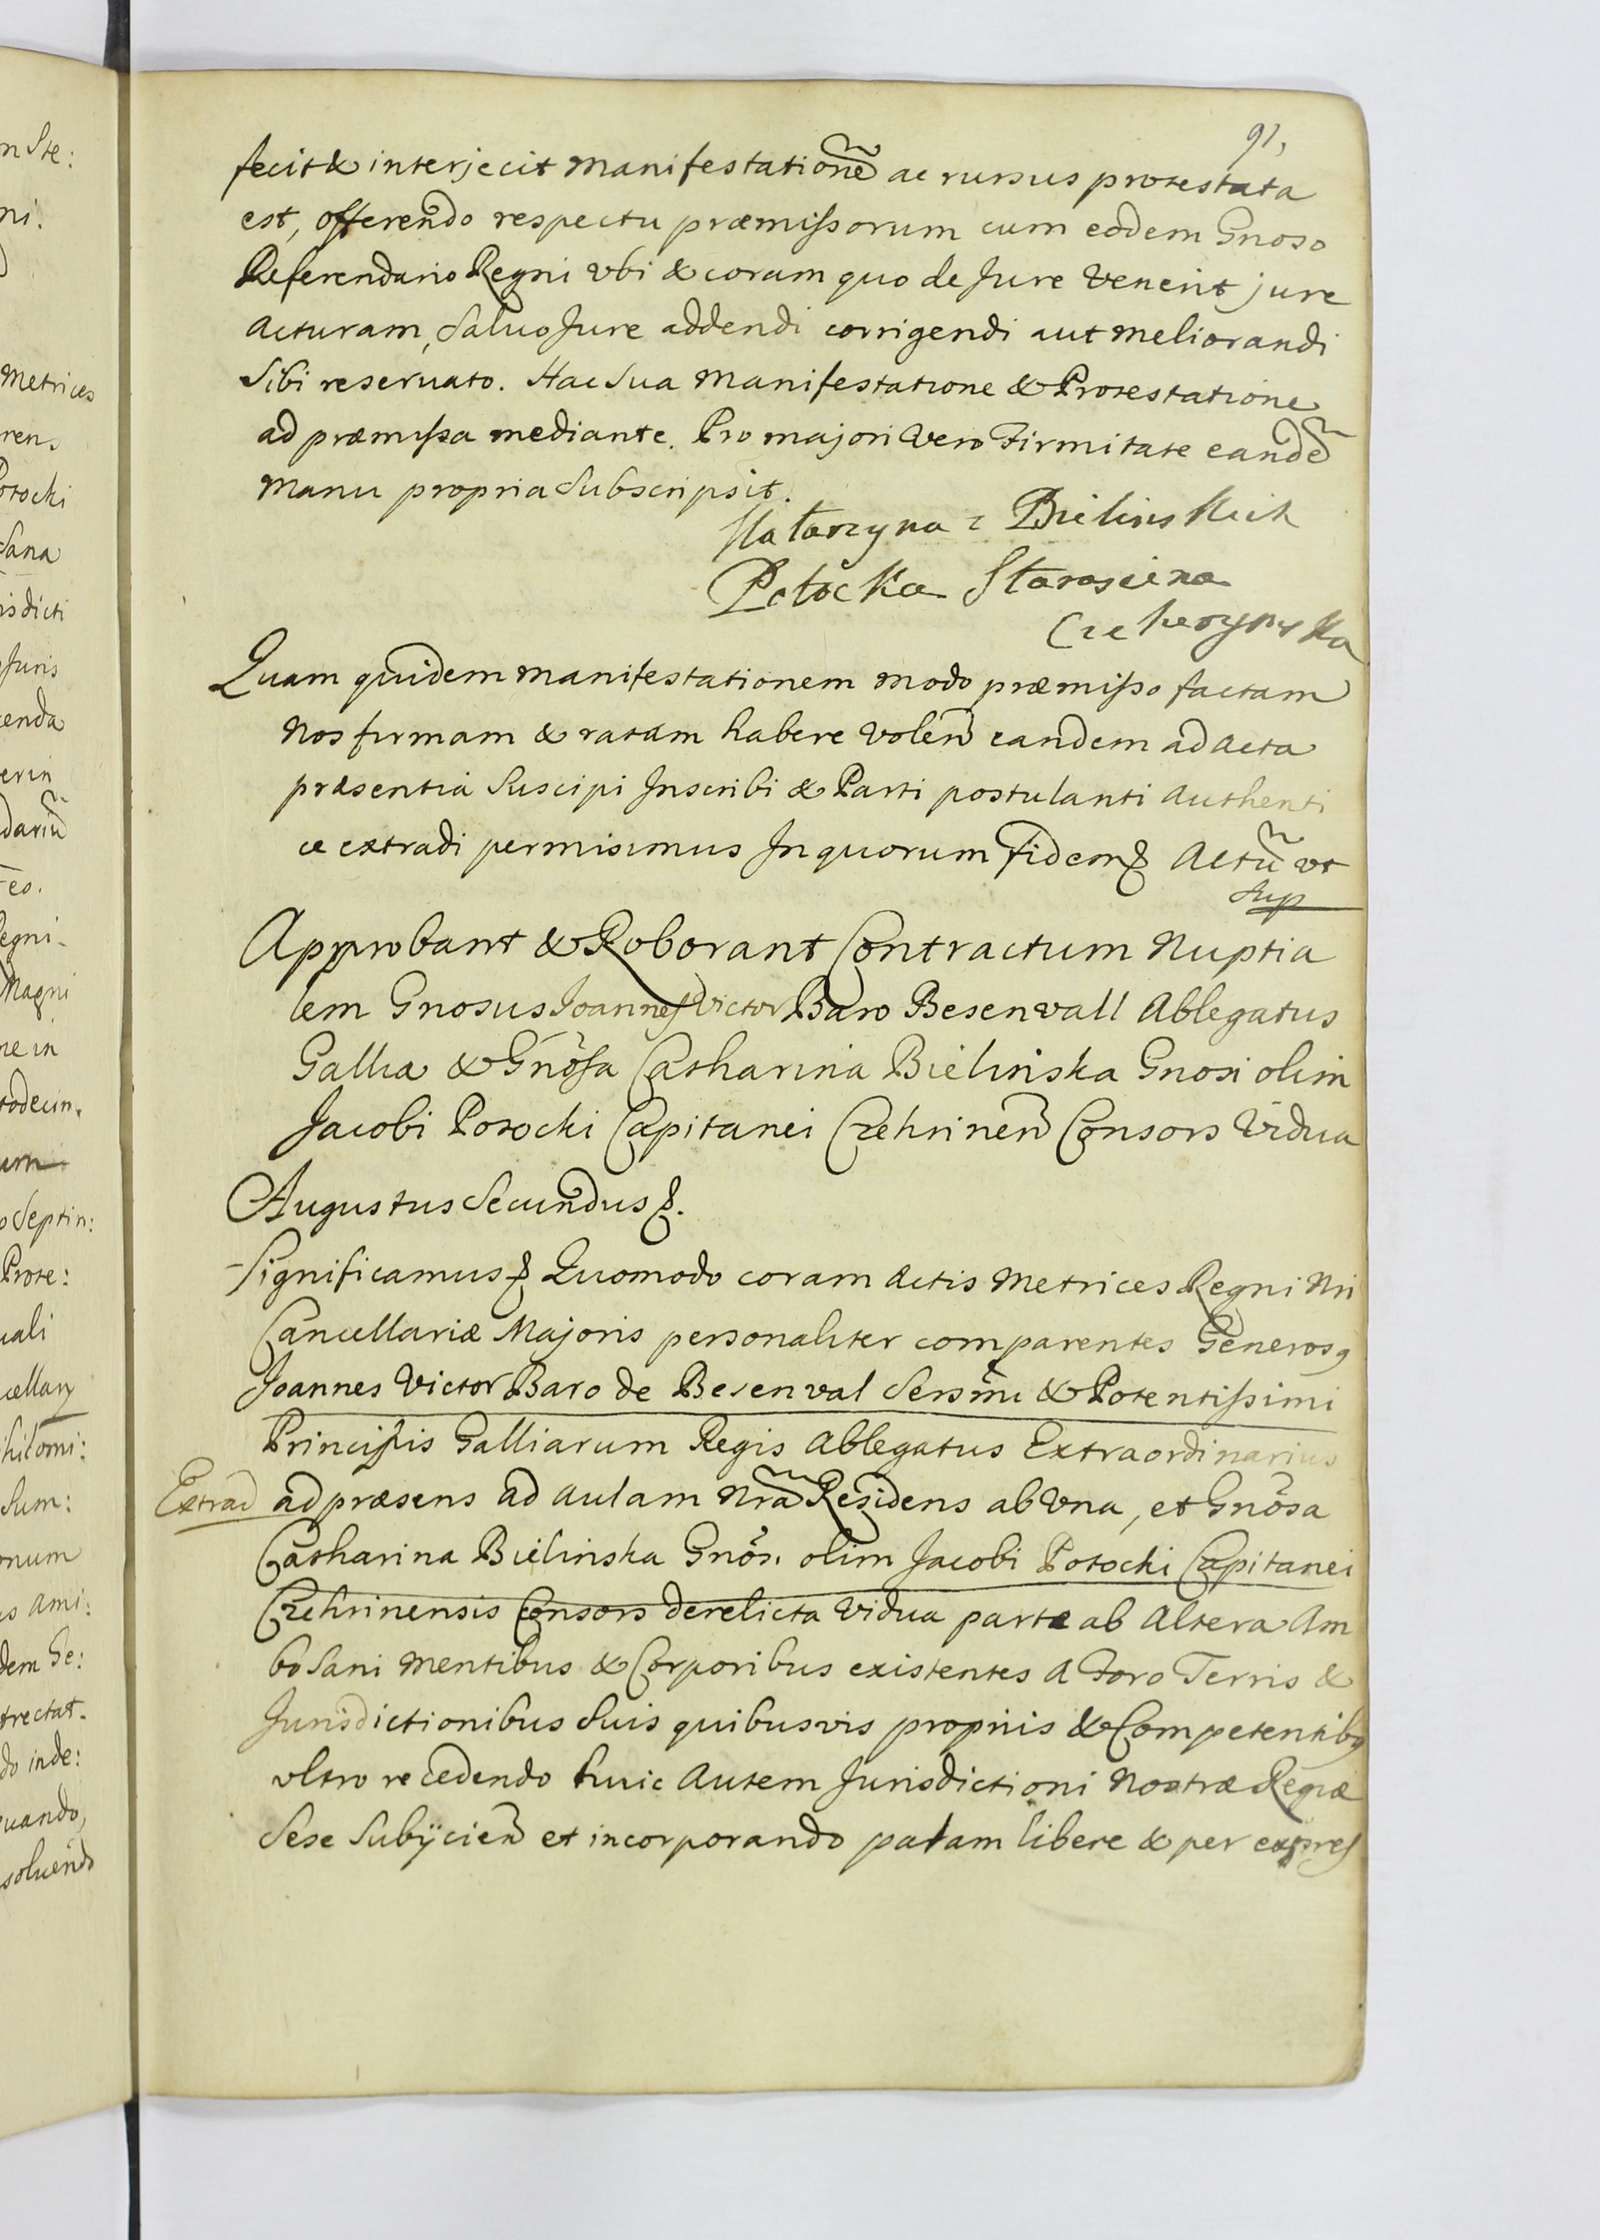 91,
fecit & interjecit Manifestationẽ ac rursus protestata
est, offerendo respectu præmissorum cum eodem Gnoso
Referendario Regni vbi & coram quo de Jure Venerit jure
Acturam, Saluo Jure addendi corrigendi aut Meliorandi
Sibi reseruato. Hac Sua Manifestatione & Protestatione
ad præmissa mediante. Pro majori Vero Firmitate eandẽ
Manu propria Subscripsit.
Katarzyna z Bielinskich
Potocka Staroscina
Czehrynska
Quam quidem Manifestationem Modo præmisso factam
Nos firmam & ratam habere Volen̄ eandem ad Acta
præsentia Suscipi Inscribi & Parti postulanti Authenti
ce extradi permisimus In quorum fidem Actũ vt
Sup
Approbant & Roborant Contractum Nuptia
lem Gnosus Joannes Victor Baro Besenvall Ablegatus
Galliæ & Gnõsa Catharina Bielinska Gnosi olim
Jacobi Potocki Capitanei Czehrinen̄ Consors Vidua
Augustus Secundus
Significamus Quomodo coram Actis Metrices Regni Nri
Cancellariæ Majoris personaliter comparentes Generosq
Joannes Victor Baro de Besenval Sers̃mi & Potentissimi
Principis Galliarum Regis Ablegatus Extraordinarius
Extrad ad præsens ad Aulam Nrã Residens ab Vna, et Gnõsa
Catharina Bielinska Gnõsi olim Jacobi Potocki Capitanei
Czehrinensis Consors derelicta Vidua parte ab Altera Am
bo Sani Mentibus & Corporibus existentes A Foro Terris &
Jurisdictionibus Suis quibusvis propriis & Competentibq
vltro recedendo huic Autem Jurisdictioni Nostræ Regiæ
Sese Subÿcien̄ et incorporando palam libere & per expres